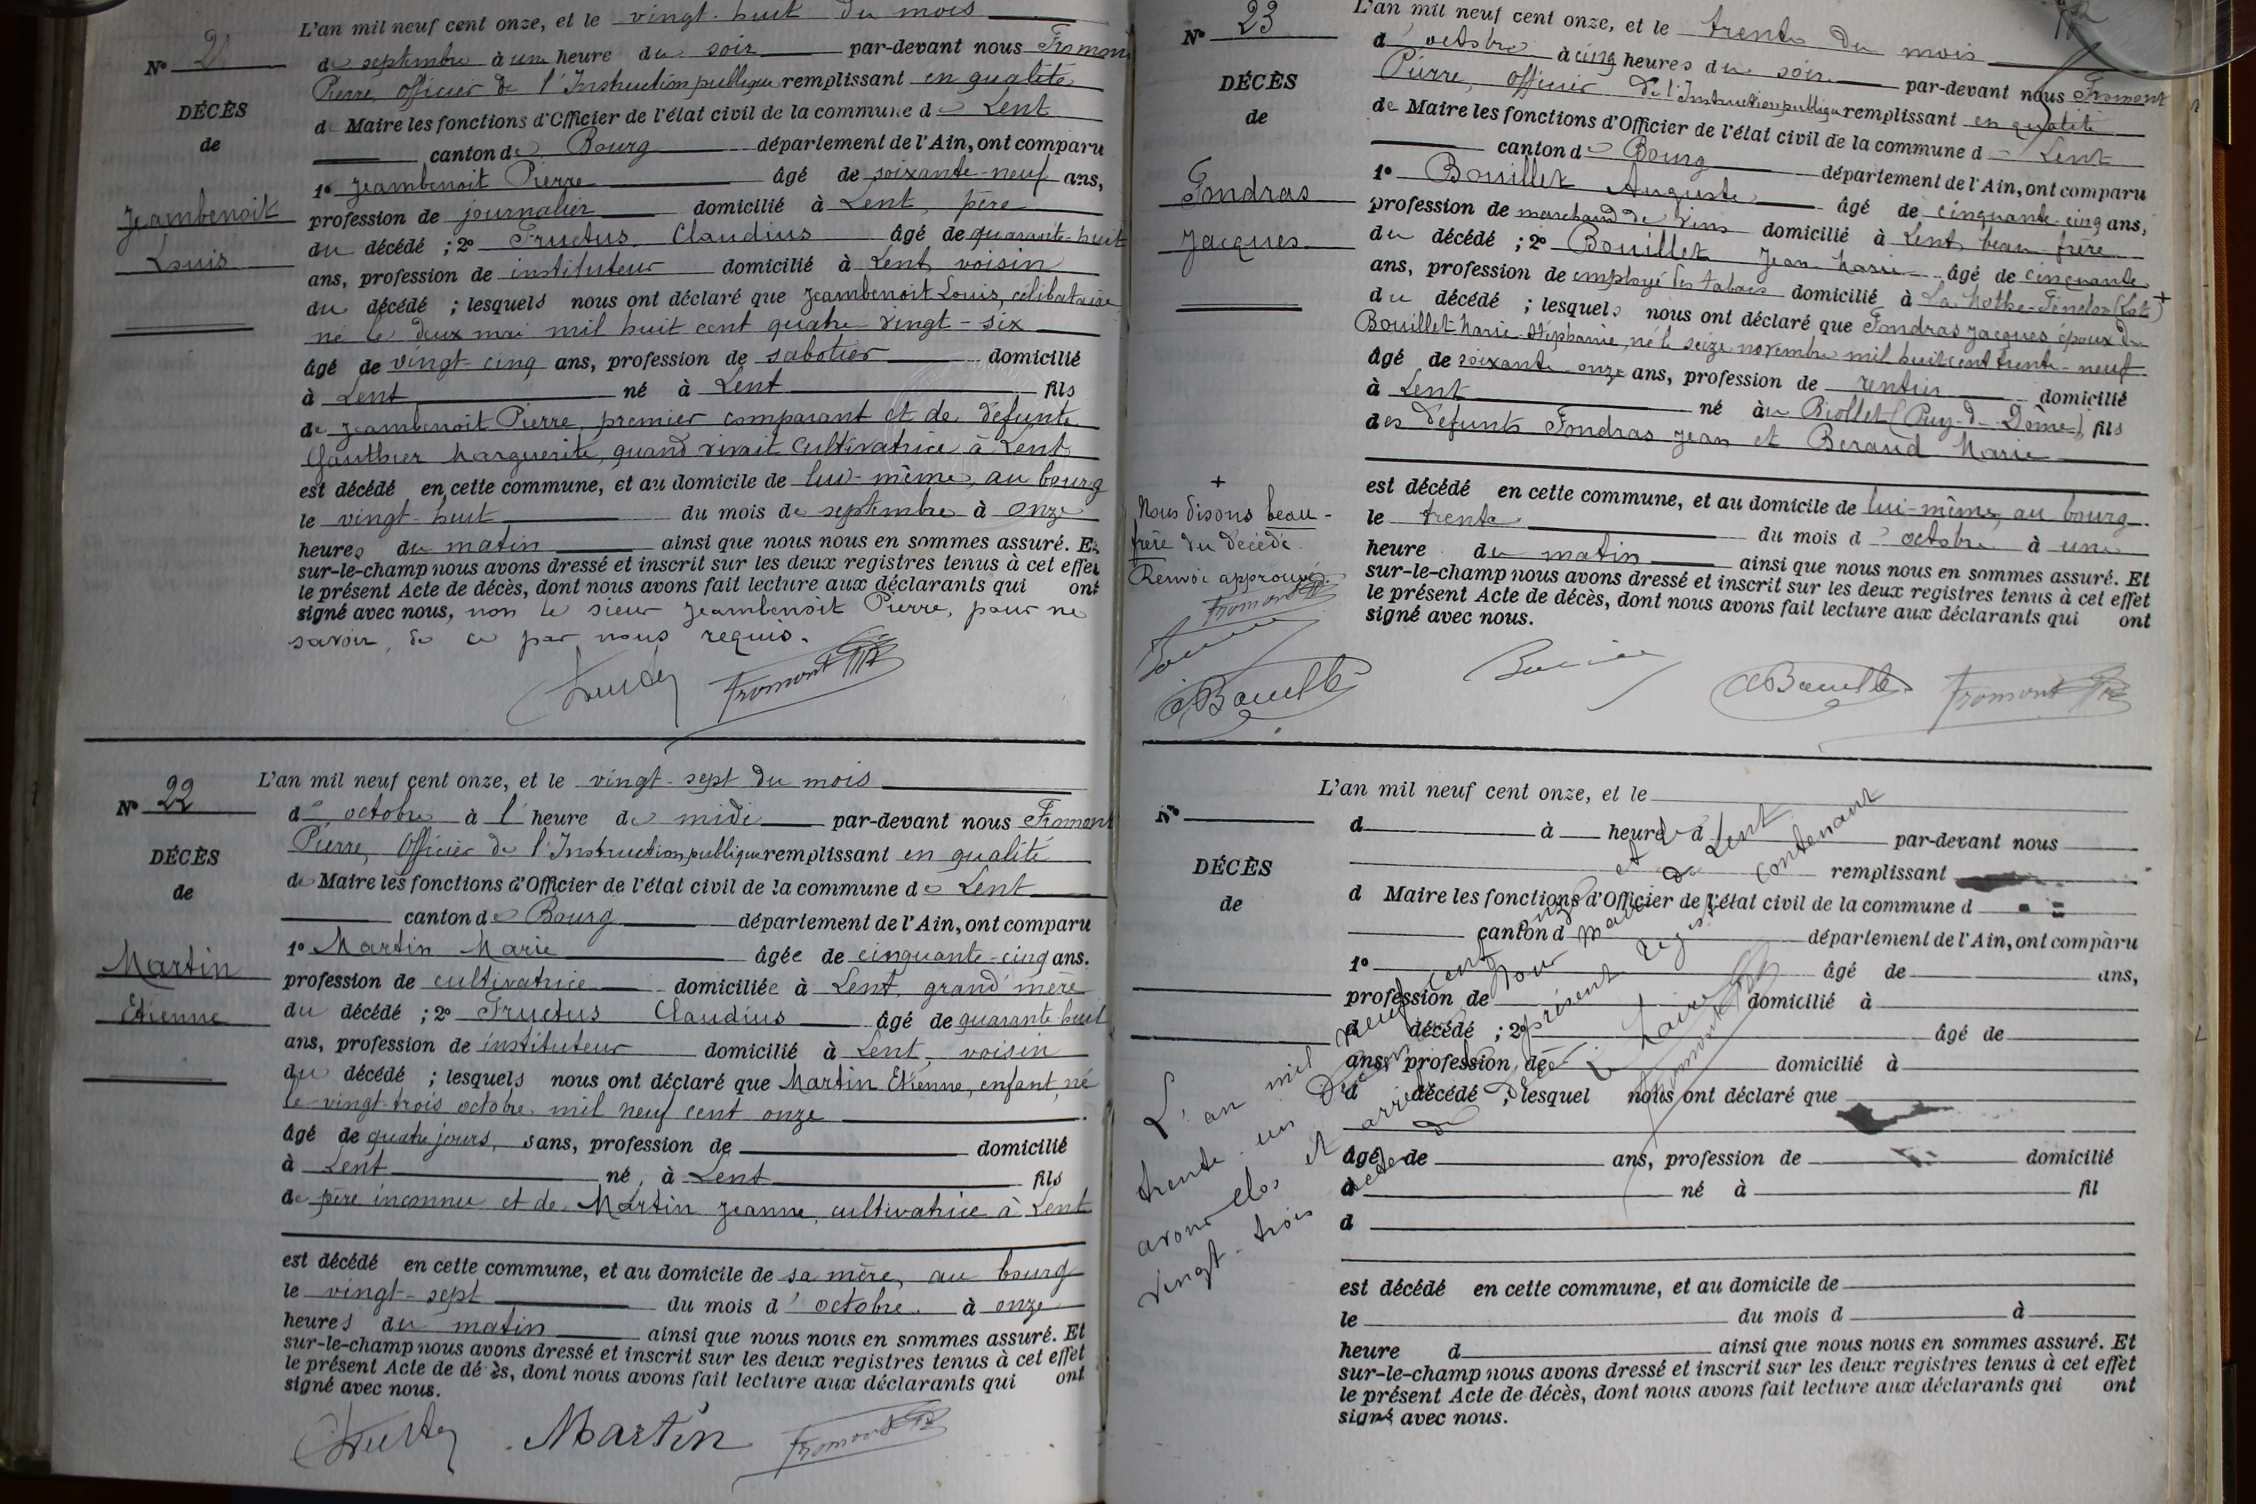 L'an mil neuf cent onze, et le vingt-huit du mois
N° 2
de septembre à une heure du soir par-devant nous Fromont
Pierre, Officier de l'Instruction publique remplissant en qualité
DÉCÈS
de Maire les fonctions d'Officier de l'état civil de la commune de Lent
de
canton de Bourg département de l'Ain, ont comparu
1° Jeambenoit Pierre âgé de soixante-neuf ans,
Jeambenoit
profession de journalier domicilié à Lent, père
du décédé ; 2° Fructus Claudius âgé de quarante-huit
Louis
ans, profession de instituteur domicilié à Lent, voisin
du décédé ; lesquels nous ont déclaré que Jeambenoit Louis, célibataire
né le deux mai mil huit cent quatre-vingt-six
âgé de vingt-cinq ans, profession de sabotier domicilié
à Lent né à Lent fils
de Jeambenoit Pierre, premier comparant et de défunte
Gauthier Marguerite, quand vivait cultivatrice à Lent
est décédé en cette commune, et au domicile de lui-même, au bourg
le vingt-huit du mois de septembre à onze
heures du matin ainsi que nous nous en sommes assuré. Et
sur-le-champ nous avons dressé et inscrit sur les deux registres tenus à cet effet
le présent Acte de décès, dont nous avons fait lecture aux déclarants qui ont
signé avec nous, non le sieur Jeambenoit Pierre, pour ne
savoir, de ce par nous requis.
Fromont
L'an mil neuf cent onze, et le vingt-sept du mois
N° 22
d'octobre à l'heure de midi par-devant nous Fromont
Pierre, Officier de l'Instruction publique remplissant en qualité
DÉCÈS
de Maire les fonctions d'Officier de l'état civil de la commune de Lent
de
canton de Bourg département de l'Ain, ont comparu
1° Martin Marie âgée de cinquante-cinq ans.
Martin
profession de cultivatrice domiciliée à Lent, grand'mère
du décédé ; 2° Fructus Claudius âgé de quarante-huit
Etienne
ans, profession de instituteur domicilié à Lent, voisin
du décédé ; lesquels nous ont déclaré que Martin Etienne, enfant, né
le vingt-trois octobre mil neuf cent onze
âgé de quatre jours, sans, profession de domicilié
à Lent né à Lent fils
de père inconnu et de Martin Jeanne, cultivatrice à Lent
est décédé en cette commune, et au domicile de sa mère, au bourg
le vingt-sept du mois d'octobre à onze
heures du matin ainsi que nous nous en sommes assuré. Et
sur-le-champ nous avons dressé et inscrit sur les deux registres tenus à cet effet
le présent Acte de décès, dont nous avons fait lecture aux déclarants qui ont
signé avec nous.
Martin Fromont
L'an mil neuf cent onze, et le trente du mois
N° 23
d'octobre à cinq heures du soir par-devant nous Fromont
Pierre, Officier de l'Instruction publique remplissant en qualité
DÉCÈS
de Maire les fonctions d'Officier de l'état civil de la commune de Lent
de
canton de Bourg département de l'Ain, ont comparu
1° Bouillet Auguste âgé de cinquante-cinq ans,
Fondras
profession de marchand de vins domicilié à Lent, beau-frère
du décédé ; 2° Bouillet Jean-Marie âgé de cinquante
Jacques
ans, profession de employé des tabacs domicilié à La Mothe-Fénelon (Lot) +
du décédé ; lesquels nous ont déclaré que Fondras Jacques époux de
Bouillet Marie-Stéphanie, né le seize novembre mil huit cent trente-neuf
âgé de soixante-onze ans, profession de rentier domicilié
à Lent né à Biollet (Puy-de-Dôme), fils
des défunts Fondras Jean et Beraud Marie
est décédé en cette commune, et au domicile de lui-même, au bourg
le trente du mois d'octobre à une
heure du matin ainsi que nous nous en sommes assuré. Et
sur-le-champ nous avons dressé et inscrit sur les deux registres tenus à cet effet
le présent Acte de décès, dont nous avons fait lecture aux déclarants qui ont
signé avec nous.
+
Nous disons beau-
frère du décédé.
Renvoi approuvé.
Fromont
Fromont
L'an mil neuf cent onze, et le
N°
d à heure d par-devant nous
remplissant
DÉCÈS
d Maire les fonctions d'Officier de l'état civil de la commune d
de
canton d département de l'Ain, ont comparu
1° âgé de ans,
profession de domicilié à
d décédé ; 2° âgé de
ans, profession de domicilié à
d décédé ; lesquel nous ont déclaré que
âgé de ans, profession de domicilié
à né à fil
d
est décédé en cette commune, et au domicile de
le du mois d à
heure d ainsi que nous nous en sommes assuré. Et
sur-le-champ nous avons dressé et inscrit sur les deux registres tenus à cet effet
le présent Acte de décès, dont nous avons fait lecture aux déclarants qui ont
signé avec nous.
L'an mil neuf cent onze et le
trente-un Décembre Nous Maire de Lent
avons clos et arrêté le présent registre contenant
vingt-trois actes de décès
Le Maire
Fromont